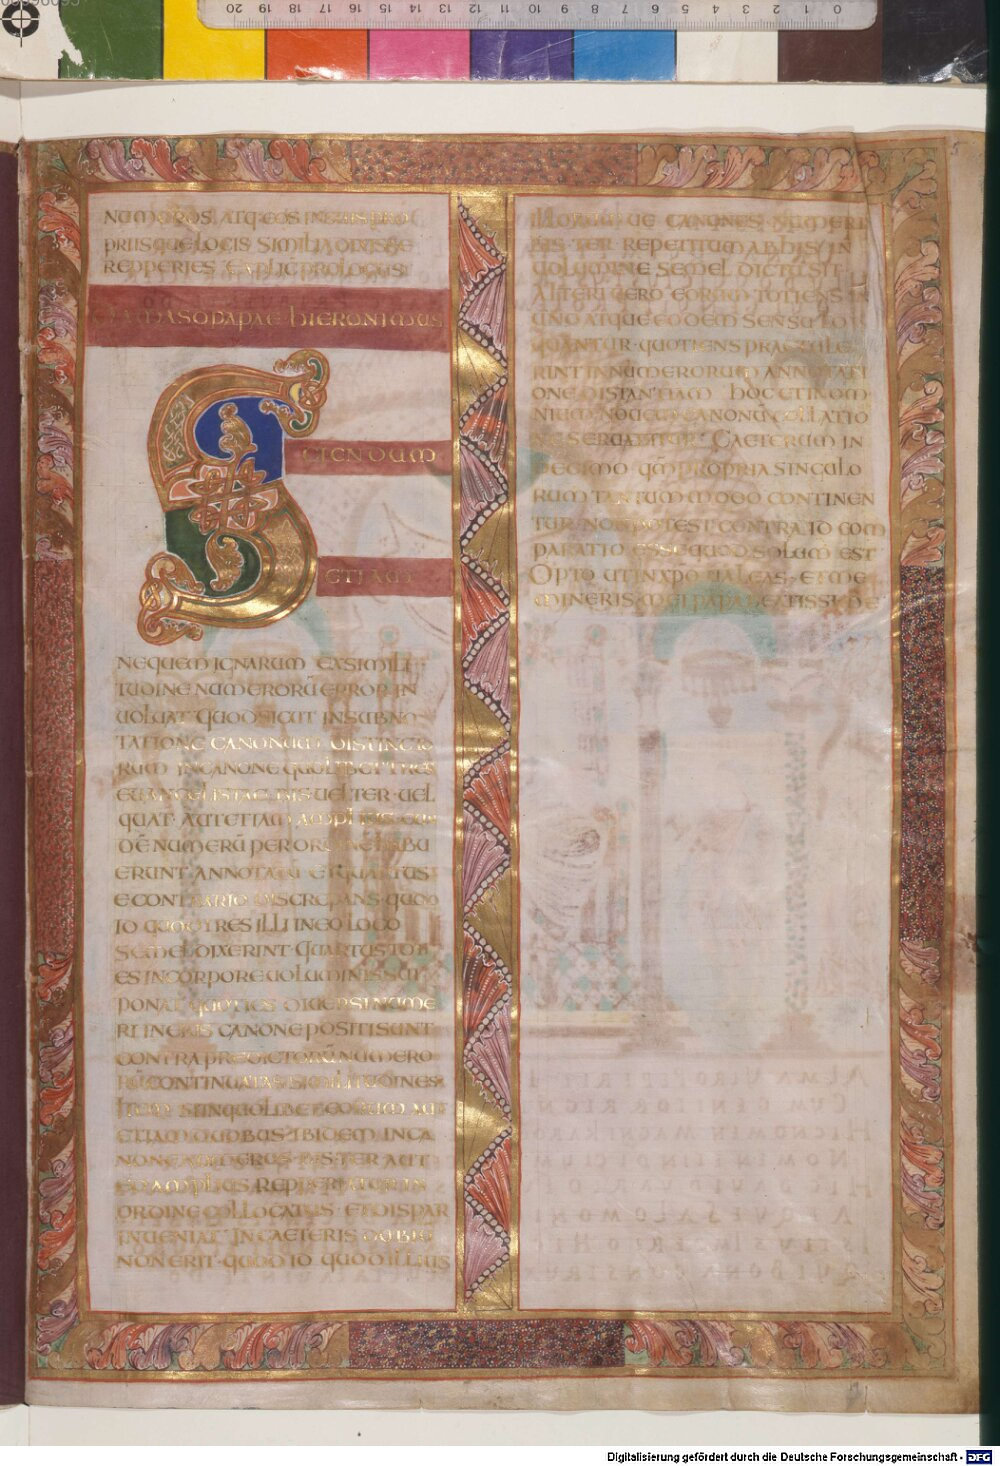 NUMEROS ATQ· EOS IN EUIS PRO
PRIISQUE LOCIS SIMILIA DIXISSE
REPPERIES EXPLIC PROLOGUS
DAMASO PAPAE HIERONIMUS
SCIENDUM
ETIAM
NEQUEM IGNARUM EXSIMILI
TUDINE NUMERORŪ ERROR IN
UOLUAT QUOD SICUT IN SUBNO
TATIONE CANONUM DISTINCTO
RUM IN CANONE QUOLIBET TRES
EUANGELISTAE BIS UEL TER UEL
QUAT AUT ETIAM AMPLIUS EUN
DĒ NUMERŪ PER ORDINE HABU
ERUNT ANNOTATŪ ET QUARTUS
E CONTRARIO DISCREPANS QUOD
ID QUOD TRES ILLI IN EO LOCO
SEMEL DIXERINT QUARTUS TOTI
ES IN CORPORE UOLUMINIS SUI
PONAT QUOTIES DIUERSI NUME
RI IN EIUS CANONE POSITI SUNT
CONTRA PREDICTORŪ NUMERO
RŪ CONTINUATAS SIMILITUDINES
ITEM SI IN QUOLIBET EORUM AUT
ETIAM DUOBUS IBIDEM IN CA
NONE NUMERUS BIS TER AUT
ETIAM PLIUS REPPERIATUR IN
ORDINE COLLOCATUS ET DISPAR
INUENIAT· IN CAETERIS DUBIŪ
NON ERIT· QUOD ID QUOD ILLIUS
ILLORUM UE CANONES NUMERI
BIS TER REPETITUM AB HIS IN
UOLUMINE SEMEL DICTŪ SIT
ALTERI UERO EORUM TOTIENS IN
UNO ATQUE EODEM SENSU LO
QUANTUR QUOTIENS PRAECULE
RINT IN NUMERORUM ANNOTATI
ONE DISTANTIAM HOC ET IN OM
NIUM NOUEM CANONŪ COLLATIO
NE SERUABITUR· CAETERUM IN
DECIMO QM̄ PROPRIA SINGULO
RUM TANTUM MODO CONTINEN
TUR· NON POTEST CONTRA ID COM
PARATIO ESSE QUOD SOLUM EST
OPTO UT IN XPO UALEAS· ET ME
MINERIS MEI PAPA BEATISSIME
20 19 18 17 16 15 14 13 12 11 10 9 8 7 6 5 4 3 2 1 0
Digitalisierung gefördert durch die Deutsche Forschungsgemeinschaft - DFG